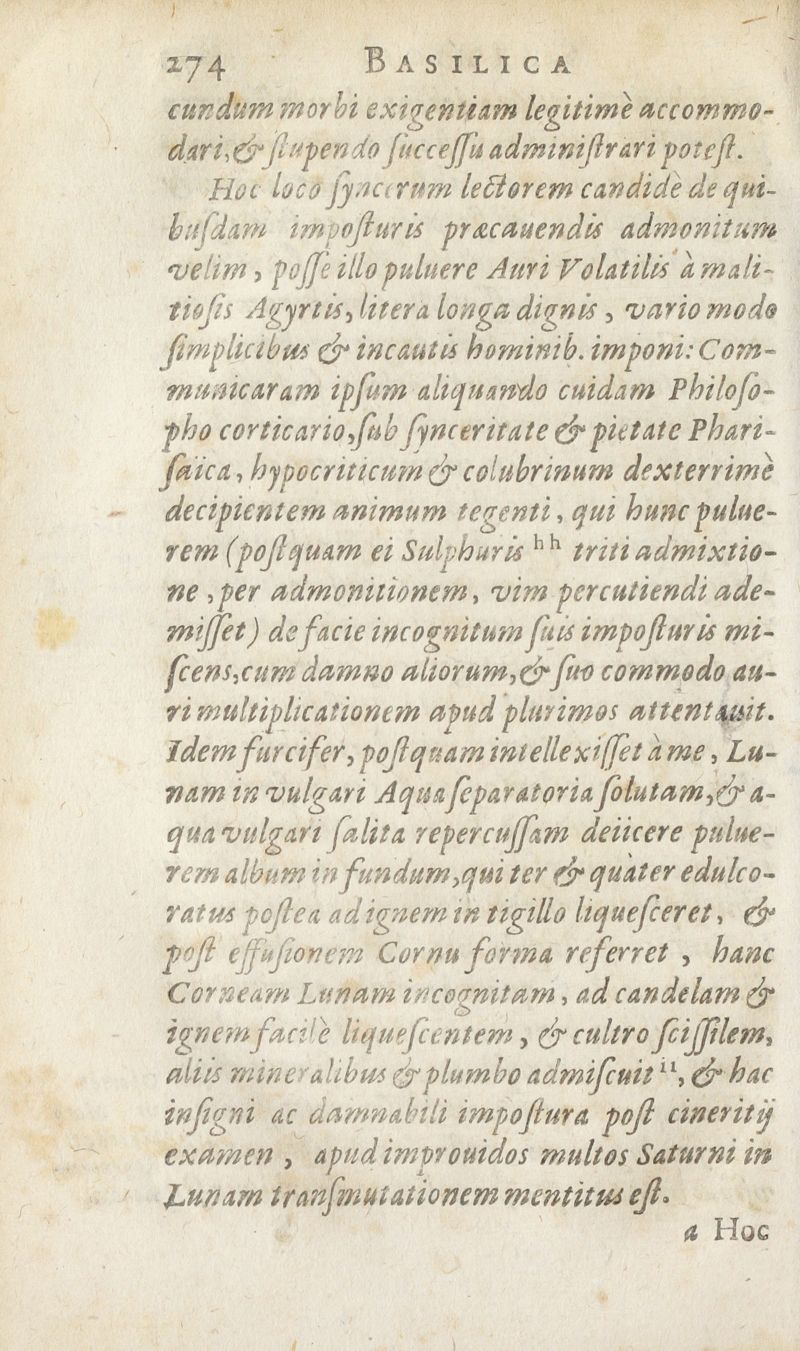 274 BASILICA
cundum morbi exigentiam legitimè accommo-
dari, & ſtupendo ſucceſſu adminiſtrari poteſt.
Hoc loco ſyncerum lectorem candidè de qui-
buſdam impoſturis præcauendis admonitum
velim, poſſe illo puluere Auri Volatilis à mali-
tioſis Agyrtis, litera longa dignis, vario modo
ſimplicibus & incautis hominib. imponi: Com-
municaram ipſum aliquando cuidam Philoſo-
pho corticario, ſub ſynceritate & pietate Phari-
ſaïca, hypocriticum & colubrinum dexterrimè
decipientem animum tegenti, qui hunc pulue-
rem (poſtquam ei Sulphuris hh triti admixtio-
ne, per admonitionem, vim percutiendi ade-
miſſet) de facie incognitum ſuis impoſturis mi-
ſcens, cum damno aliorum, & ſuo commodo au-
ri multiplicationem apud plurimos attentauit.
Idem furcifer, poſtquam intellexiſſet à me, Lu-
nam in vulgari Aqua ſeparatoria ſolutam, & a-
qua vulgari ſalita repercuſſam deiicere pulue-
rem album in fundum, qui ter & quàter edulco-
ratus poſtea ad ignem in tigillo liqueſceret, &
poſt effuſionem Cornu forma referret, hanc
Corneam Lunam incognitam, ad candelam &
ignem facilè liqueſcentem, & cultro ſciſſilem,
aliis mineralibus & plumbo admiſcuit ii, & hac
inſigni ac damnabili impoſtura poſt cineritij
examen, apud improuidos multos Saturni in
Lunam tranſmutationem mentitus eſt.
a Hoc